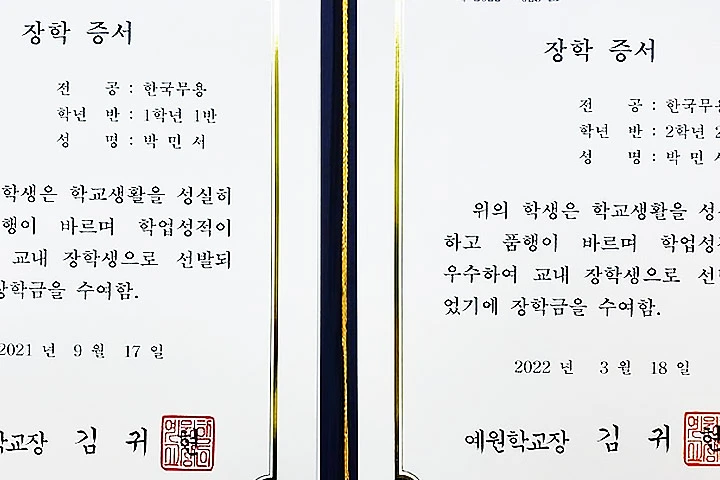 장학 증서
전 공 : 한국무용
학년 반 : 1학년 1반
성 명 : 박 민 서
학생은 학교생활을 성실히
행이 바르며 학업성적이
교내 장학생으로 선발되
장학금을 수여함.
2021 년 9 월 17 일
학교장 김 귀 현
장학 증서
전 공 : 한국무용
학년 반 : 2학년 2
성 명 : 박 민 서
위의 학생은 학교생활을 성
하고 품행이 바르며 학업성적
우수하여 교내 장학생으로 선발
었기에 장학금을 수여함.
2022 년 3 월 18 일
예원학교장 김 귀 현